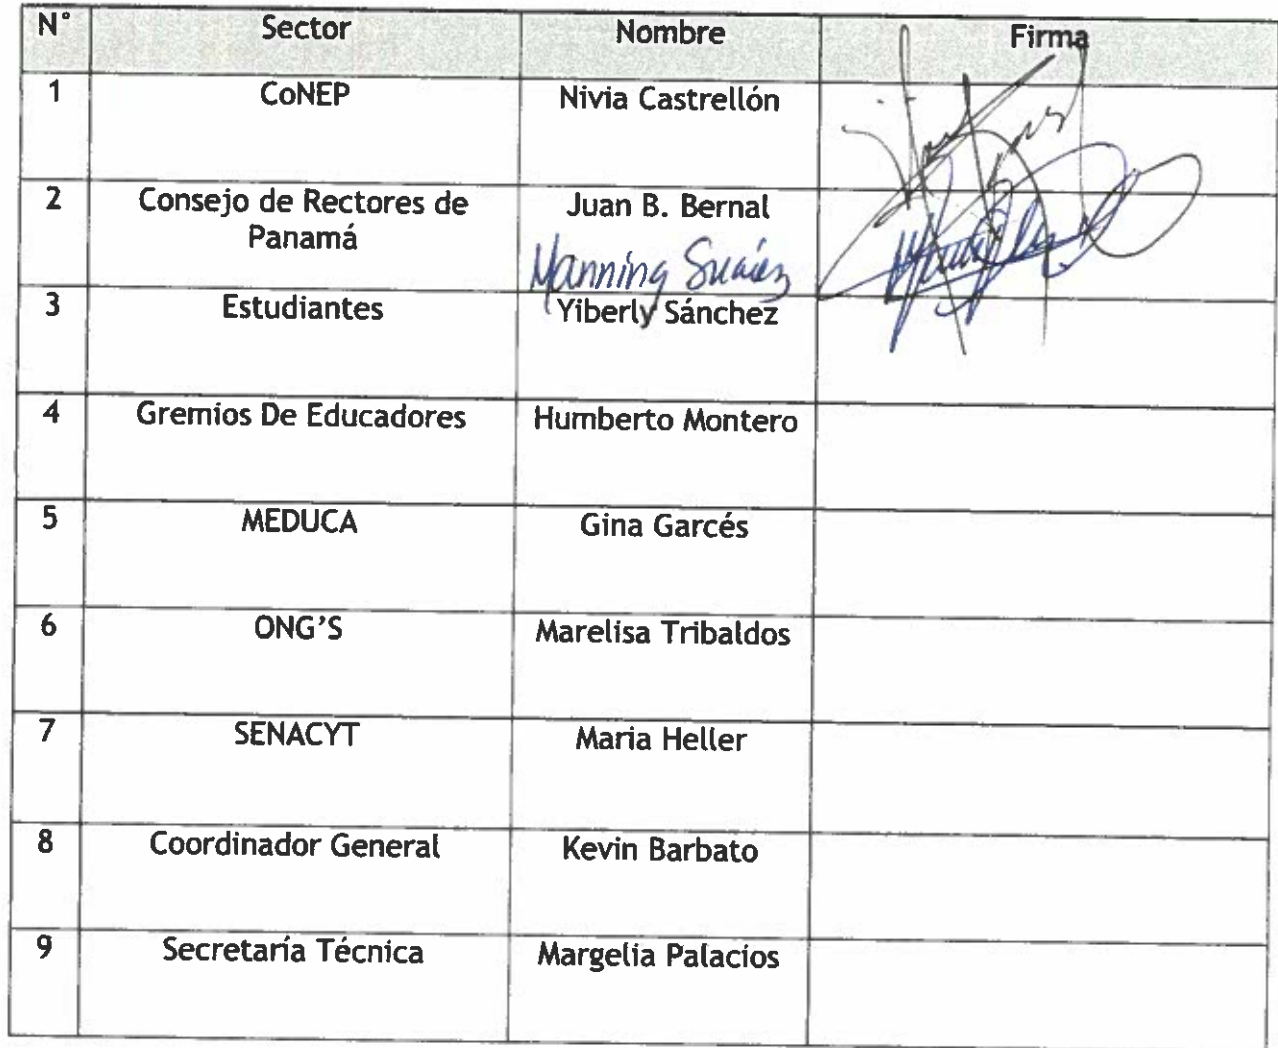 N° Sector Nombre Firma
1 CoNEP Nivia Castrellón
2 Consejo de Rectores de Panamá Juan B. Bernal
Manning Suárez
3 Estudiantes Yiberly Sánchez
4 Gremios De Educadores Humberto Montero
5 MEDUCA Gina Garcés
6 ONG'S Marelisa Tribaldos
7 SENACYT Maria Heller
8 Coordinador General Kevin Barbato
9 Secretaría Técnica Margelia Palacios